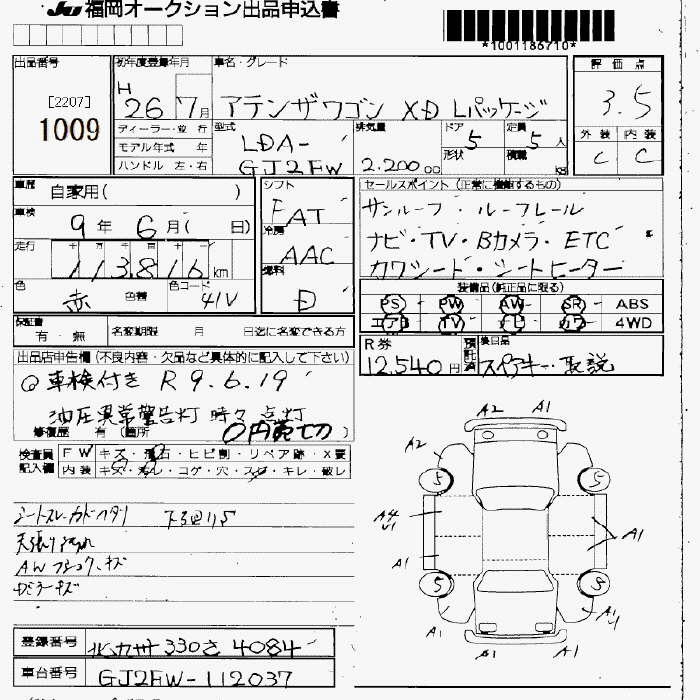 JU 福岡オークション出品申込書
*1001186710*
出品番号
[2207]
1009
初年度登録年月
H 26 7月
車名・グレード
アテンザワゴン XD Lパッケージ
評価点
3.5
外装 内装
C C
ディーラー・並行
モデル年式 年
ハンドル 左・右
型式
LDA-
GJ2FW
排気量
2.200 cc
ドア 5
形状
定員 5人
積載 KG
車歴
自家用( )
車検
9年 6月( 日)
走行
113,816 km
色
赤
色替
色コード
41V
シフト
FAT
冷房
AAC
燃料
D
セールスポイント (正常に機能するもの)
サンルーフ・ルーフレール
ナビ・TV・Bカメラ・ETC
カワシート・シートヒーター
装備品(純正品に限る)
PS PW AW SR ABS
エアB TV ナビ カワ 4WD
保証書
有・無
名変期限 月 日迄に名変できる方
R券
12.540円
預託済
後日品
スペアキー・取説
出品店申告欄(不良内容・欠品など具体的に記入して下さい)
◎車検付き R9.6.19
油圧異常警告灯 時々点灯
修復歴 有 (箇所 )
検査員記入欄
FW キズ・飛石・ヒビ割・リペア跡・X要
内装 キズ・汚レ・コゲ・穴・スレ・キレ・破レ
A2 A1
A2
5 5
A1
A1
5
A1 A1 A1
登録番号
330さ4084
車台番号
GJ2FW-112037